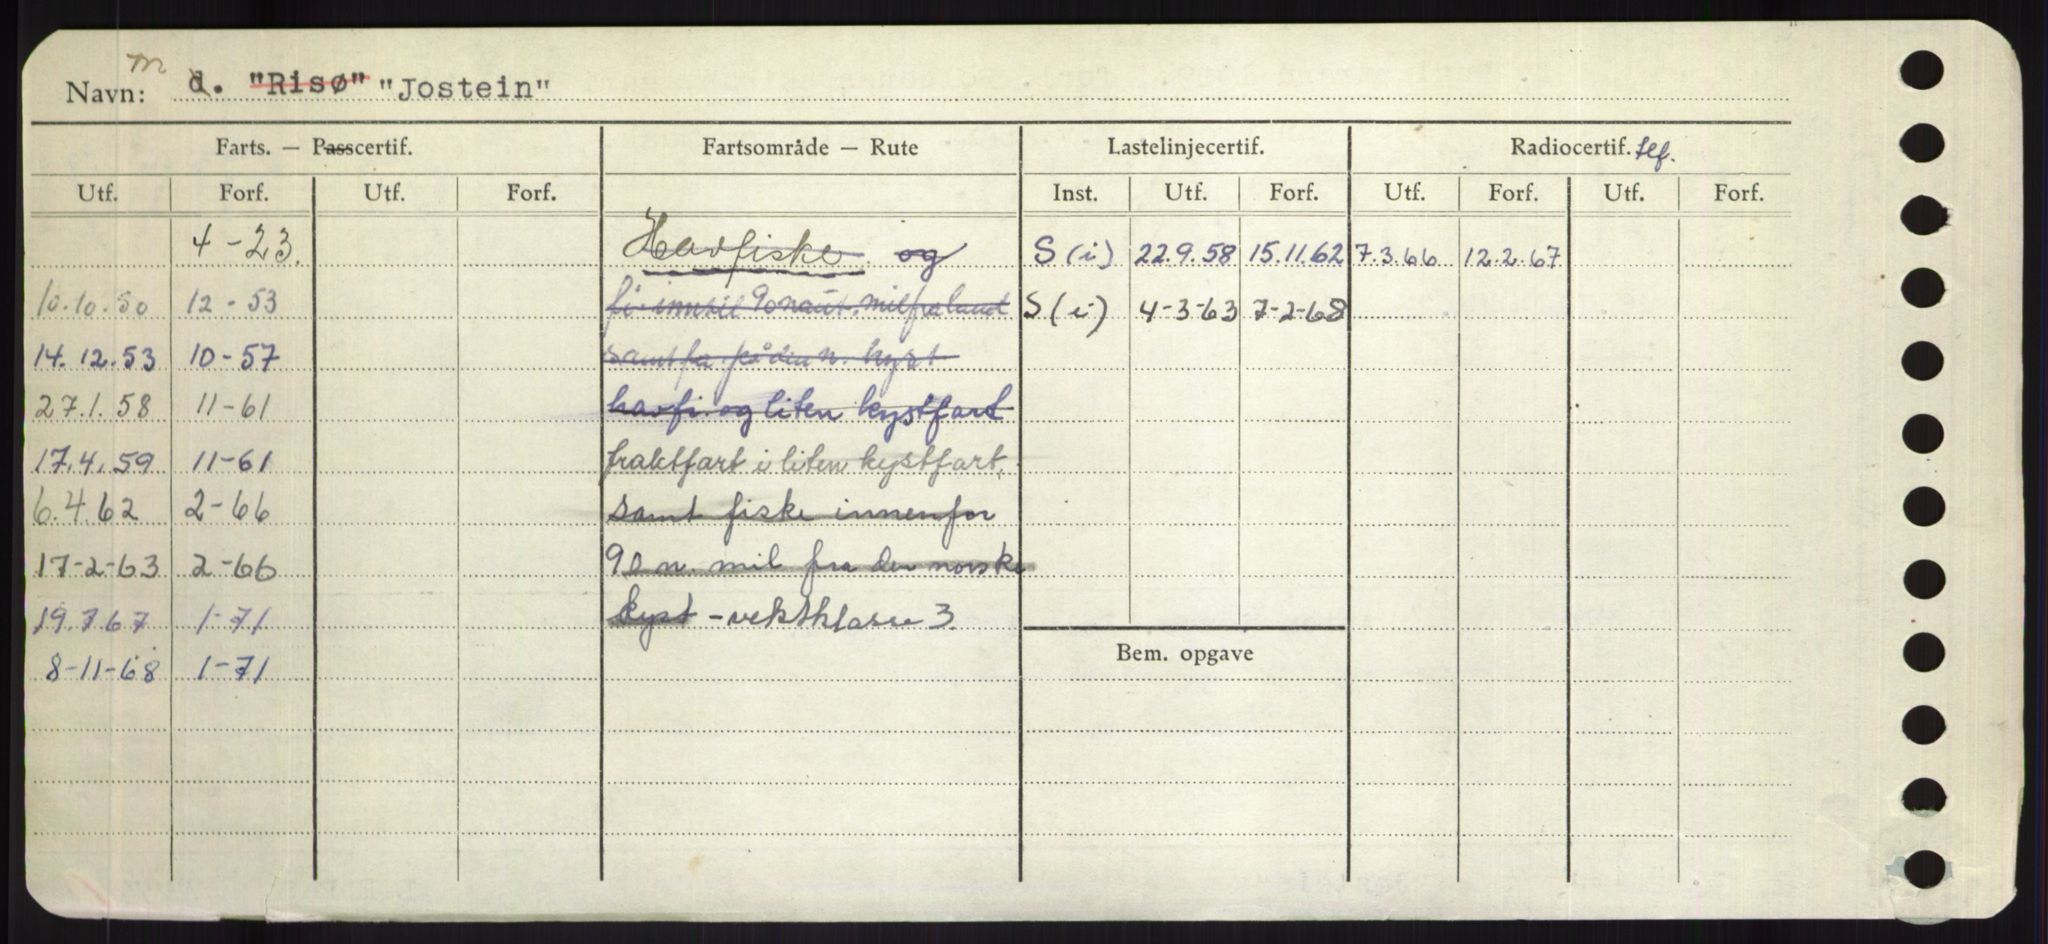 Navn: m d. "Risø" "Jostein"
Farts. — Passcertif. Fartsområde — Rute Lastelinjecertif. Radiocertif. tlf.
Utf. Forf. Utf. Forf. Inst. Utf. Forf. Utf. Forf. Utf. Forf.
4-23. Havfiske og S (i) 22.9.58 15.11.62 7.3.66 12.2.67
10.10.50 12-53 fi inntil 90 naut. mil fra land S (i) 4-3-63 7-2-68
14.12.53 10-57 samt fa. på den n. kyst
27.1.58 11-61 havfi. og liten kystfart
17.4.59 11-61 fraktfart i liten kystfart,
6.4.62 2-66 samt fiske innenfor
17-2-63 2-66 90 n. mil fra den norske
19.7.67 1-71 kyst - vektklasse 3.
8-11-68 1-71 Bem. opgave